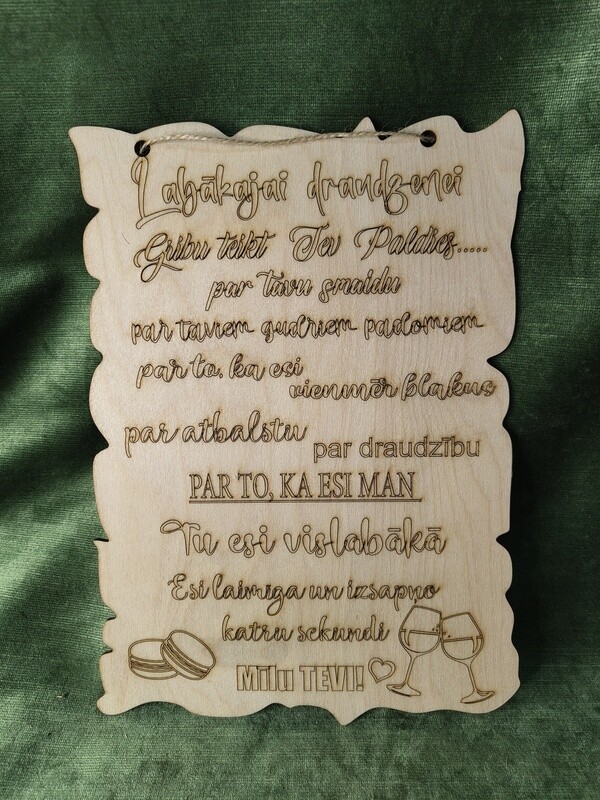 Labākajai draudzenei
Gribu teikt Tev Paldies.....
par tavu smaidu
par taviem gudriem padomiem
par to, ka esi
vienmēr blakus
par atbalstu
par draudzību
PAR TO, KA ESI MAN
Tu esi vislabākā
Esi laimīga un izsapņo
katru sekundi
Mīlu TEVI!